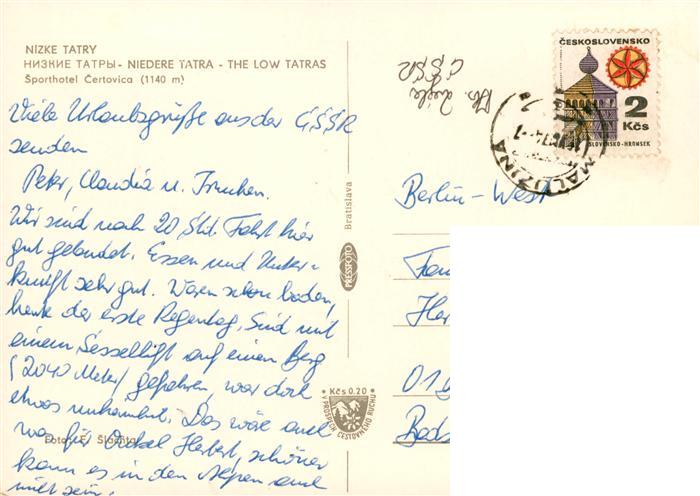 NÍZKE TATRY
НИЗКИЕ ТАТРЫ - NIEDERE TATRA - THE LOW TATRAS
Športhotel Čertovica (1140 m)
Viele Urlaubsgrüße aus der ČSSR
senden
Peter, Claudia u.
Wir sind nach 20 Std. Fahrt hier
gut gelandet. Essen und Unter-
kunft sehr gut. Waren schon baden,
heute der erste Regentag. Sind mit
einem Sessellift auf einen Berg
(2040 Meter) gefahren, war dort
etwas unheimlich. Das wäre auch
was für Onkel Herbert, schöner
kann es in den Alpen auch
nicht sein.
Foto: F. Slachta
Bratislava
PRESSFOTO
Kčs 0.20
V PROSPECH CESTOVNÉHO RUCHU
ČSSR
ČESKOSLOVENSKO
2
Kčs
SLOVENSKO-HRONSEK
MALUŽINÁ
Berlin-West
Fam
Her
01